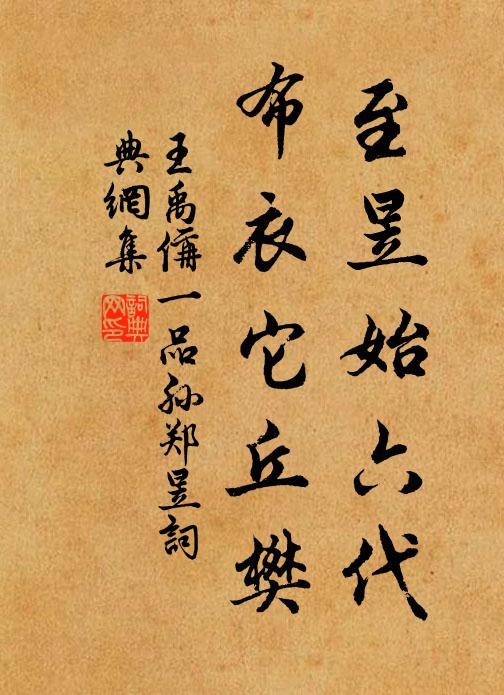 至昱始六代
布衣它丘樊
王禹偁一品孙郑昱詞
典網集
詞典網印